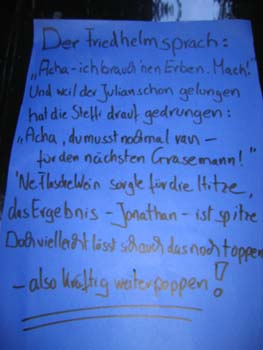 Der Friedhelm sprach:
"Acha - ich brauch 'nen Erben. Mach!"
Und weil der Julian schon gelungen
hat die Steffi drauf gedrungen:
"Acha, du musst nochmal ran -
für den nächsten Grasemann!"
'Ne Flasche Wein sorgte für die Hitze,
das Ergebnis - Jonathan - ist spitze
Doch vielleicht lässt sich auch das noch toppen
- also kräftig weiterpoppen!